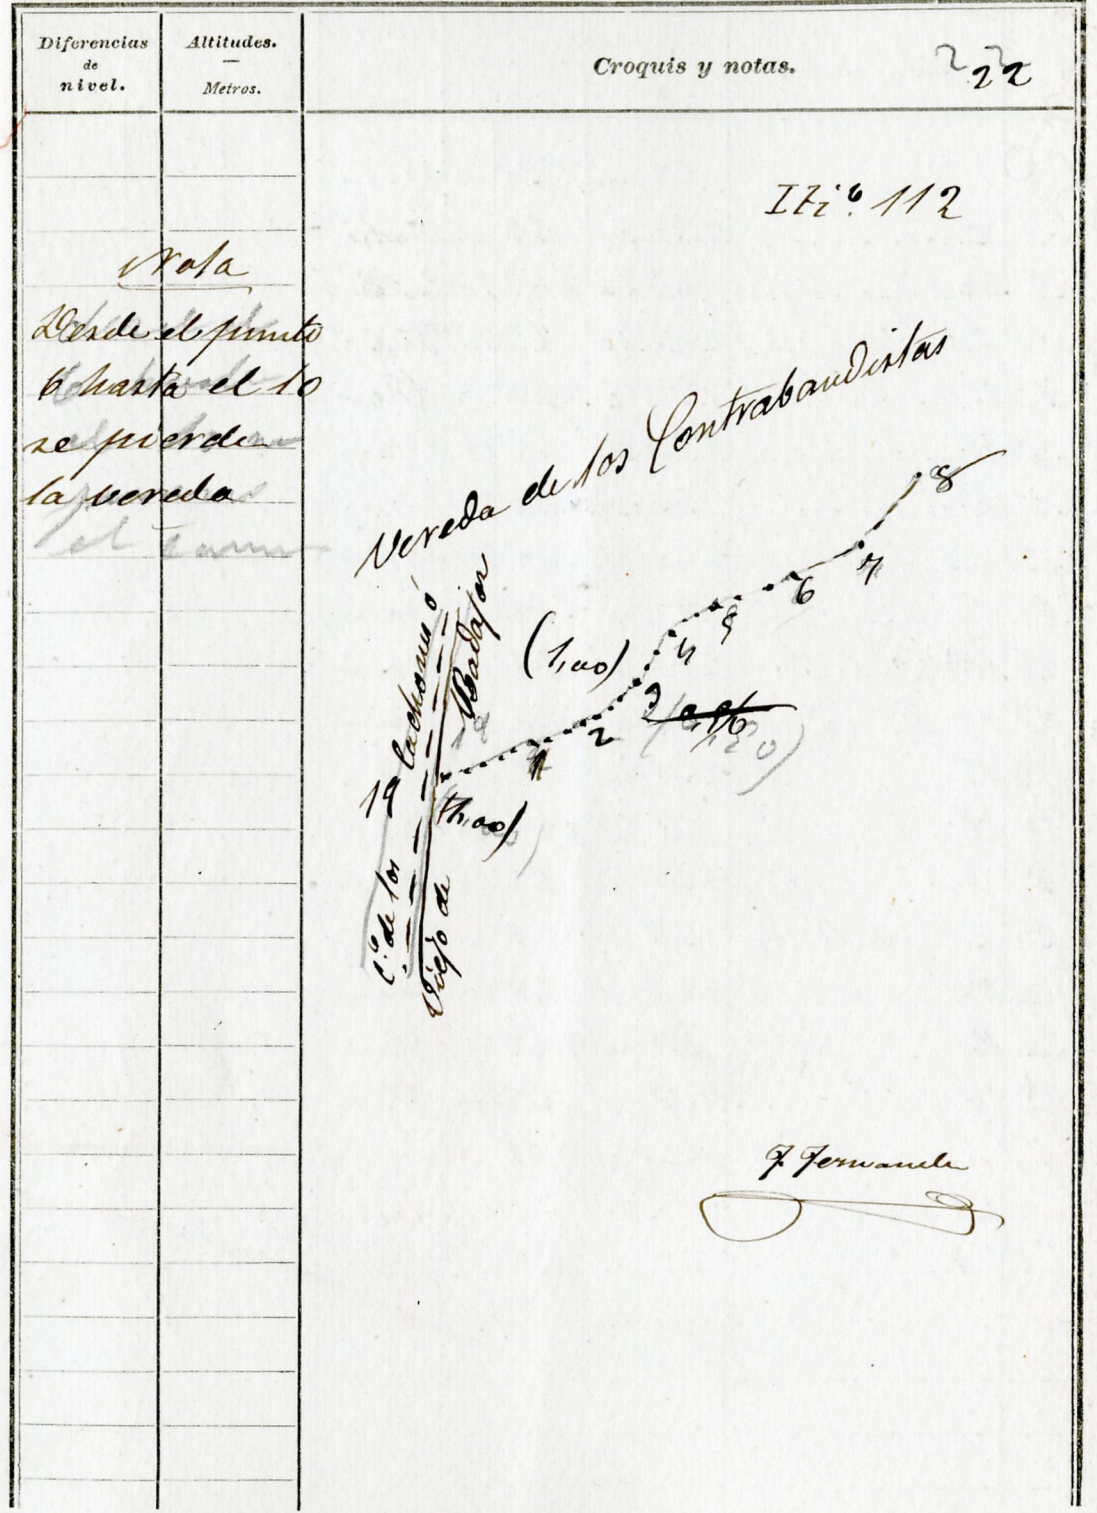 Diferencias
de
nivel.
Altitudes.
Metros.
Croquis y notas.
22
Itiº. 112
Nota
Desde el punto
6 hasta el 10
se pierde
la vereda
Vereda de los Contrabandistas
8
7
6
5
4
(1,00)
3
2
1
19
Cº. de los Cachorros ó
Viejo de Badajoz
(1,00)
F. Fernande